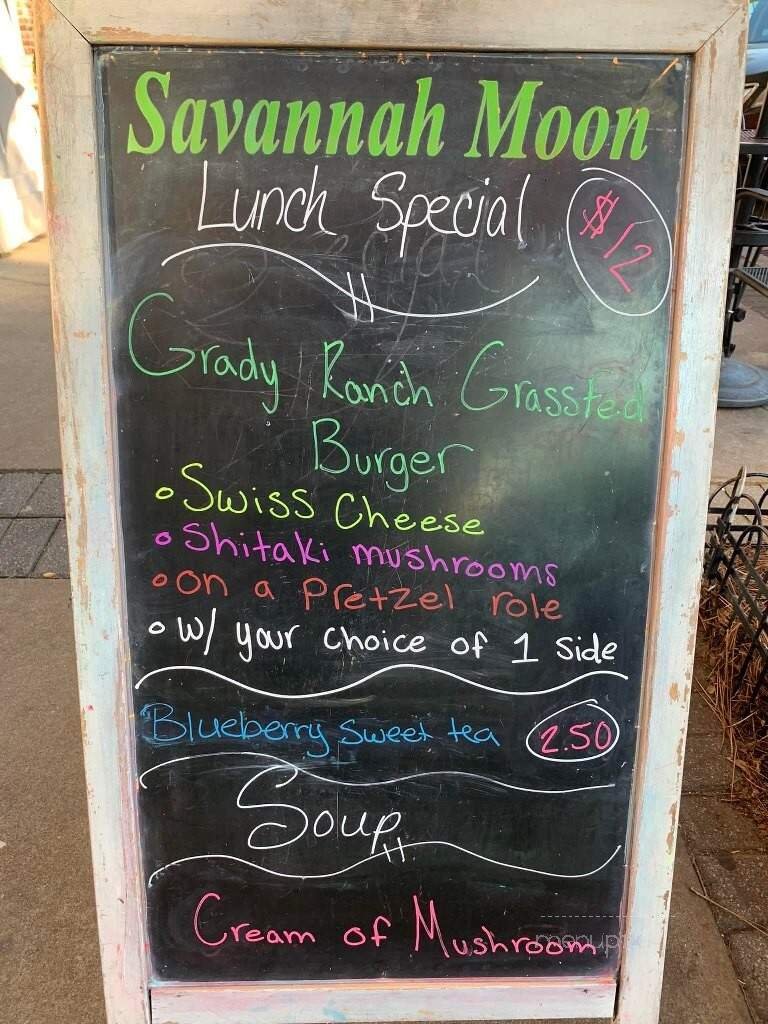 Savannah Moon
Lunch Special $12
Grady Ranch Grassfed
Burger
• Swiss Cheese
• Shitaki mushrooms
• on a Pretzel role
• w/ your choice of 1 side
Blueberry Sweet tea 2.50
Soup
Cream of Mushroom